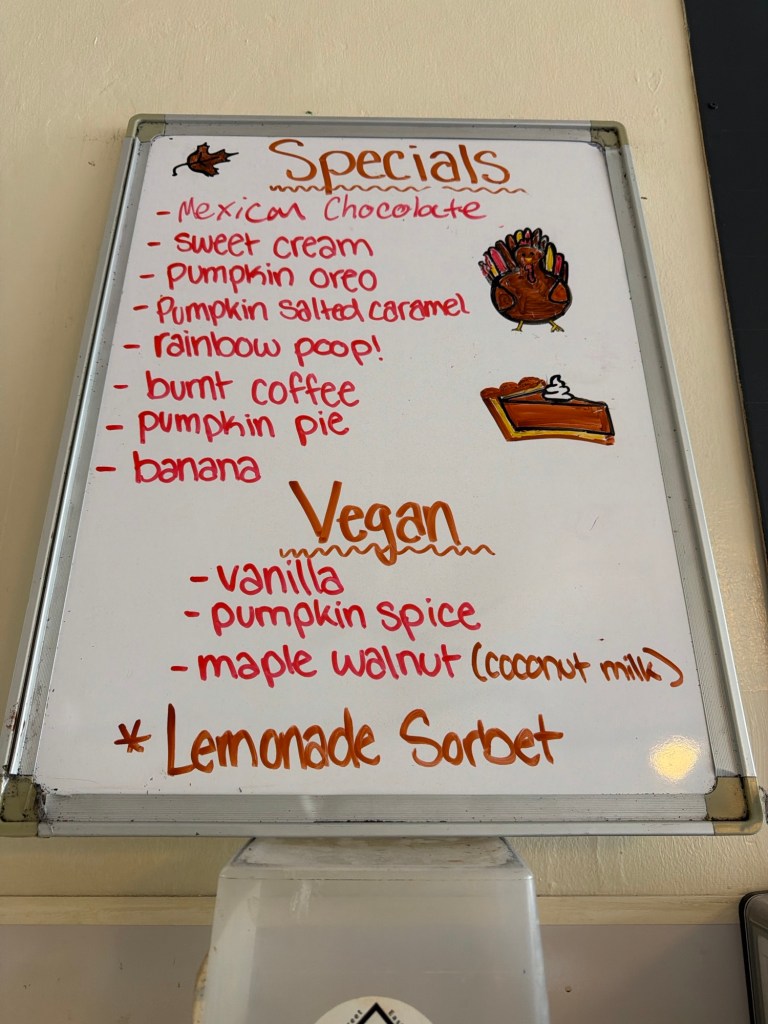 Specials
- Mexican Chocolate
- sweet cream
- pumpkin oreo
- Pumpkin salted caramel
- rainbow poop!
- burnt coffee
- pumpkin pie
- banana
Vegan
- vanilla
- pumpkin spice
- maple walnut (coconut milk)
* Lemonade Sorbet